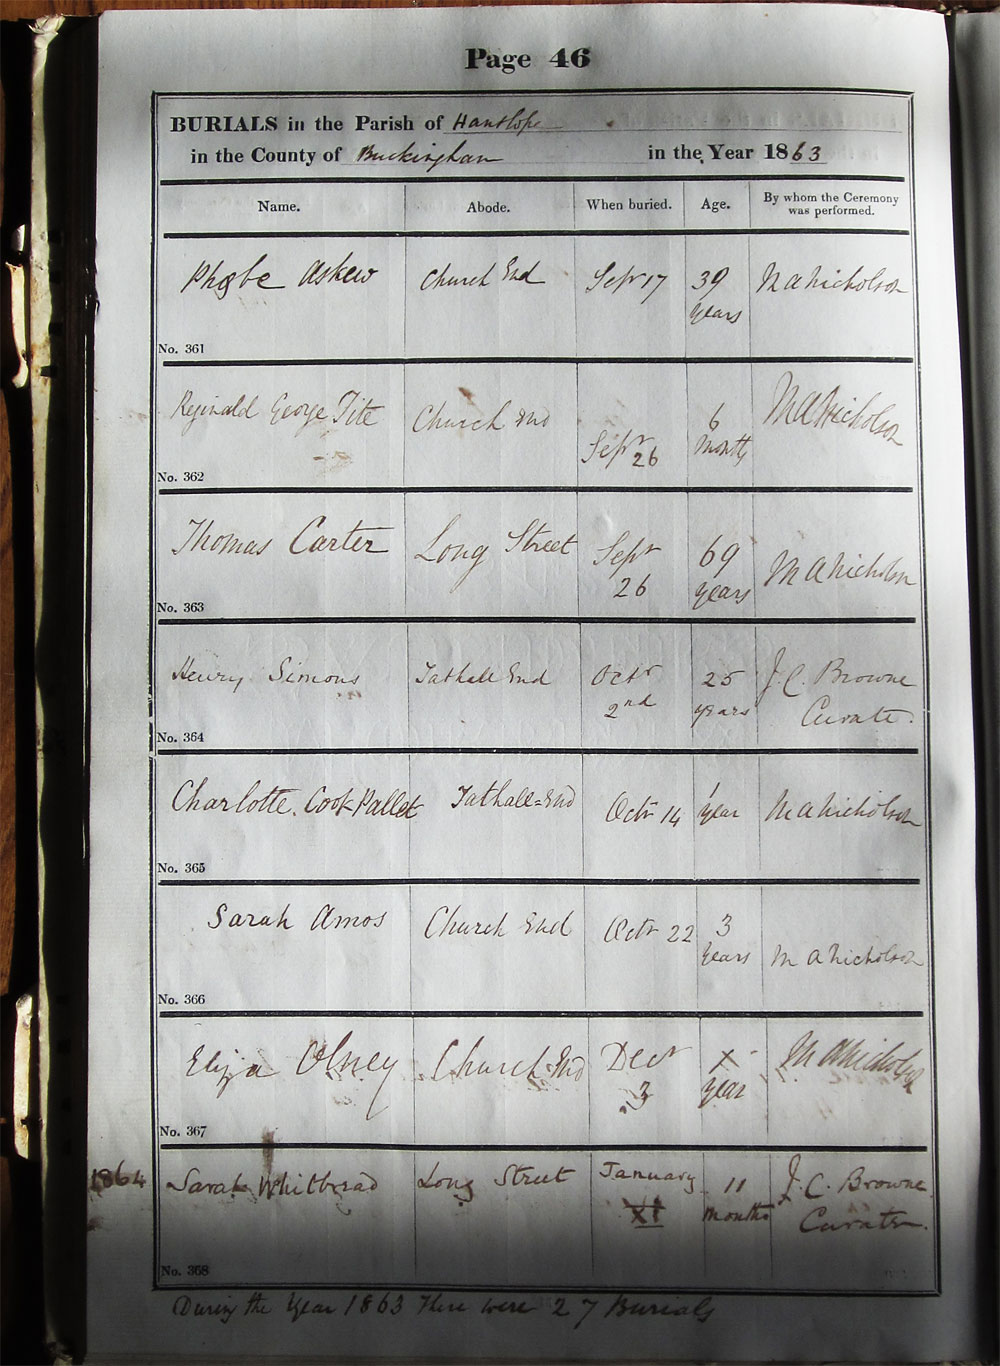 Page 46
BURIALS in the Parish of Hanslope
in the County of Buckingham in the Year 1863
Name. Abode. When buried. Age. By whom the Ceremony was performed.
Phœbe Askew Church End Septr 17 39 years M A Nicholson
No. 361
Reginald George Tite Church End Septr 26 6 Months M A Nicholson
No. 362
Thomas Carter Long Street Septr 26 69 years M A Nicholson
No. 363
Henry Simons Tathall End Octr 2nd 25 years J. C. Browne Curate.
No. 364
Charlotte Cook Pallet Tathall=End Octr 14 1 year M A Nicholson
No. 365
Sarah Amos Church End Octr 22 3 years M A Nicholson
No. 366
Eliza Olney Church End Decr 3 X year M A Nicholson
No. 367
1864 Sarah Whitbread Long Street January XI 11 months J. C. Browne Curate.
No. 368
During the Year 1863 There were 27 Burials